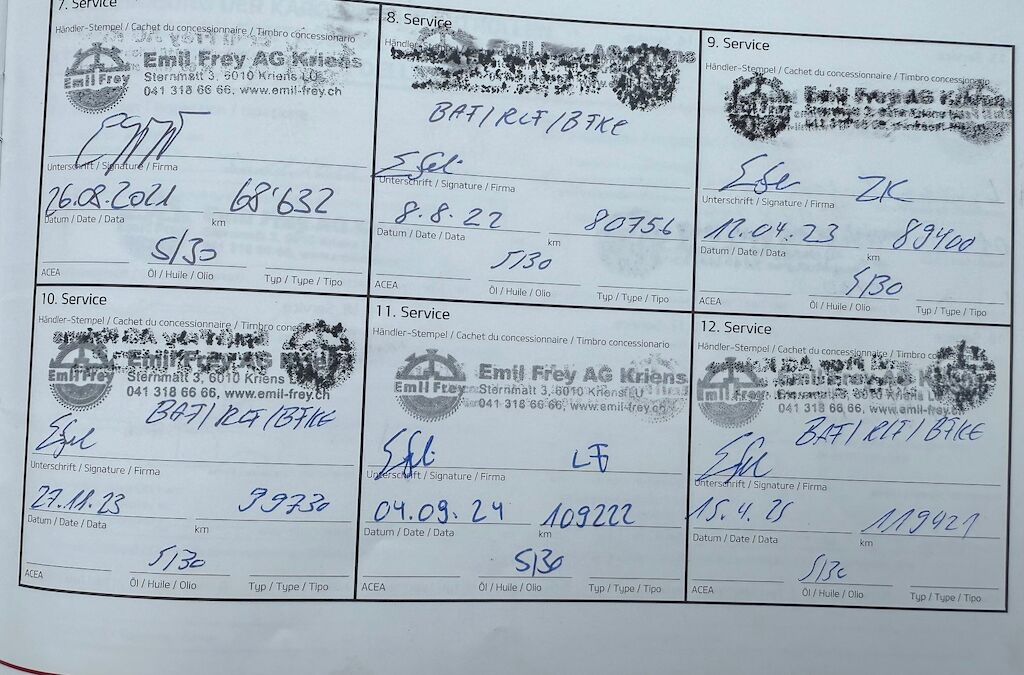 7. Service
Händler-Stempel / Cachet du concessionnaire / Timbro concessionario
Emil Frey AG Kriens
Emil Frey
Sternmatt 3, 6010 Kriens LU
041 318 66 66, www.emil-frey.ch
Unterschrift / Signature / Firma
26.08.2021 68'632
Datum / Date / Data km
5/30
ACEA Öl / Huile / Olio Typ / Type / Tipo
8. Service
BAT/RLF/BFKE
Unterschrift / Signature / Firma
8.8.22 80756
Datum / Date / Data km
5/30
ACEA Öl / Huile / Olio Typ / Type / Tipo
9. Service
Händler-Stempel / Cachet du concessionnaire / Timbro concessionario
Emil Frey AG
ZK
Unterschrift / Signature / Firma
12.04.23 89400
Datum / Date / Data km
5/30
ACEA Öl / Huile / Olio Typ / Type / Tipo
10. Service
Händler-Stempel / Cachet du concessionnaire / Timbro
Emil Frey AG
Emil Frey
Sternmatt 3, 6010 Kriens
041 318 66 66, www.emil-frey.ch
BAT/RLF/BFKE
Unterschrift / Signature / Firma
27.11.23 99730
Datum / Date / Data km
5/30
ACEA Öl / Huile / Olio Typ / Type / Tipo
11. Service
Händler-Stempel / Cachet du concessionnaire / Timbro concessionario
Emil Frey AG Kriens
Emil Frey
Sternmatt 3, 6010 Kriens LU
041 318 66 66, www.emil-frey.ch
LF
Unterschrift / Signature / Firma
04.09.24 109222
Datum / Date / Data km
5/30
ACEA Öl / Huile / Olio Typ / Type / Tipo
12. Service
Händler-Stempel / Cachet du concessionnaire / Timbro
Emil Frey
041 318 66 66, www.emil-frey.ch
BAT/RLF/BFKE
Unterschrift / Signature / Firma
15.4.25 119421
Datum / Date / Data km
5/30
ACEA Öl / Huile / Olio Typ / Type / Tipo